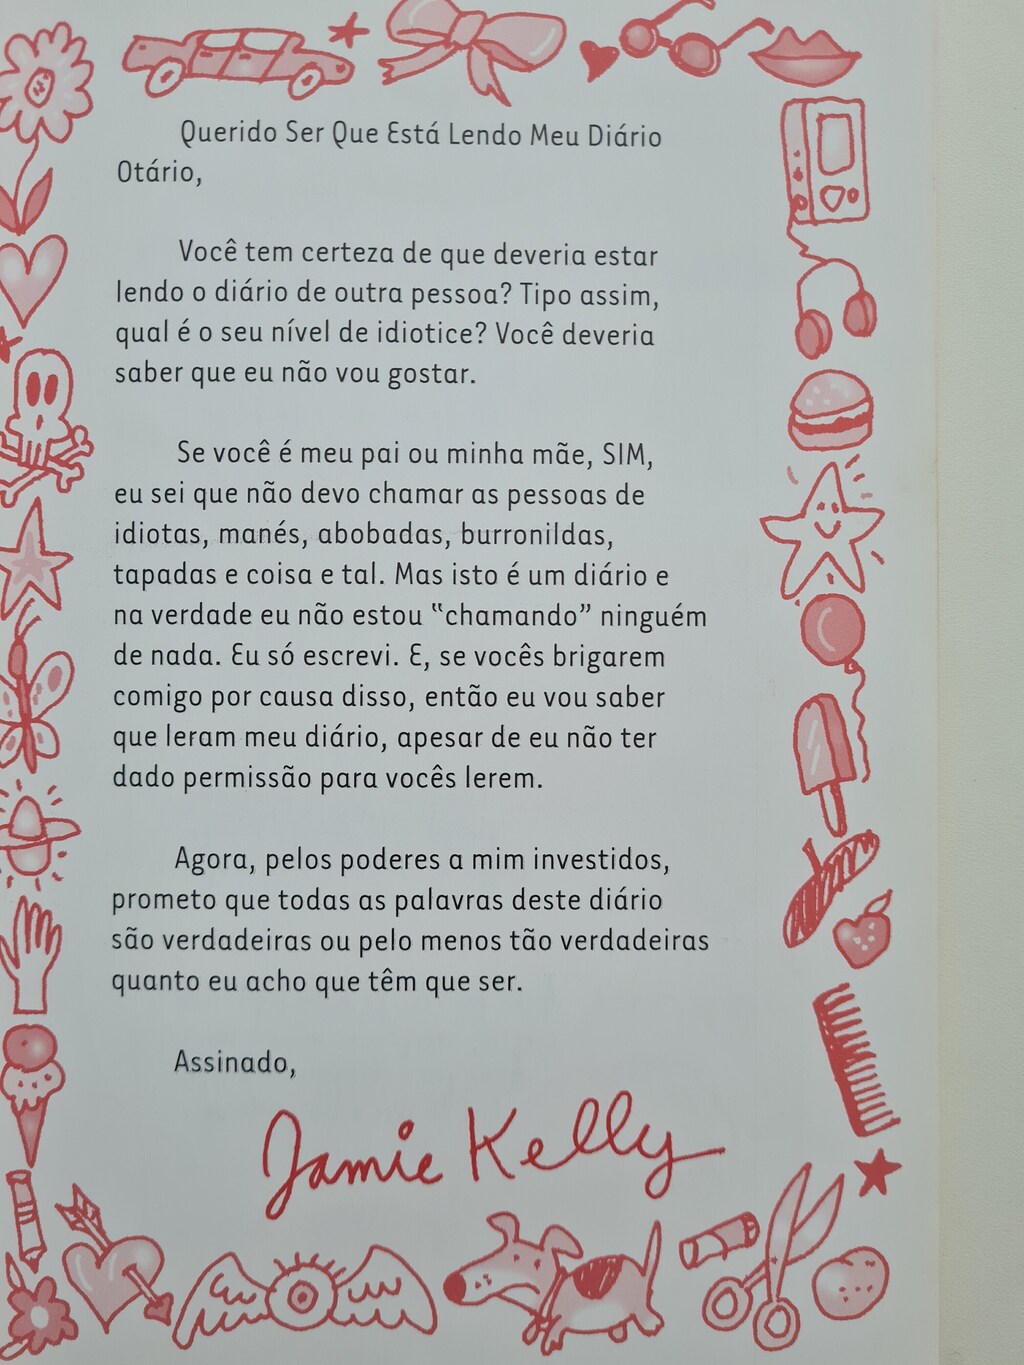 Querido Ser Que Está Lendo Meu Diário
Otário,
Você tem certeza de que deveria estar
lendo o diário de outra pessoa? Tipo assim,
qual é o seu nível de idiotice? Você deveria
saber que eu não vou gostar.
Se você é meu pai ou minha mãe, SIM,
eu sei que não devo chamar as pessoas de
idiotas, manés, abobadas, burronildas,
tapadas e coisa e tal. Mas isto é um diário e
na verdade eu não estou “chamando” ninguém
de nada. Eu só escrevi. E, se vocês brigarem
comigo por causa disso, então eu vou saber
que leram meu diário, apesar de eu não ter
dado permissão para vocês lerem.
Agora, pelos poderes a mim investidos,
prometo que todas as palavras deste diário
são verdadeiras ou pelo menos tão verdadeiras
quanto eu acho que têm que ser.
Assinado,
Jamie Kelly